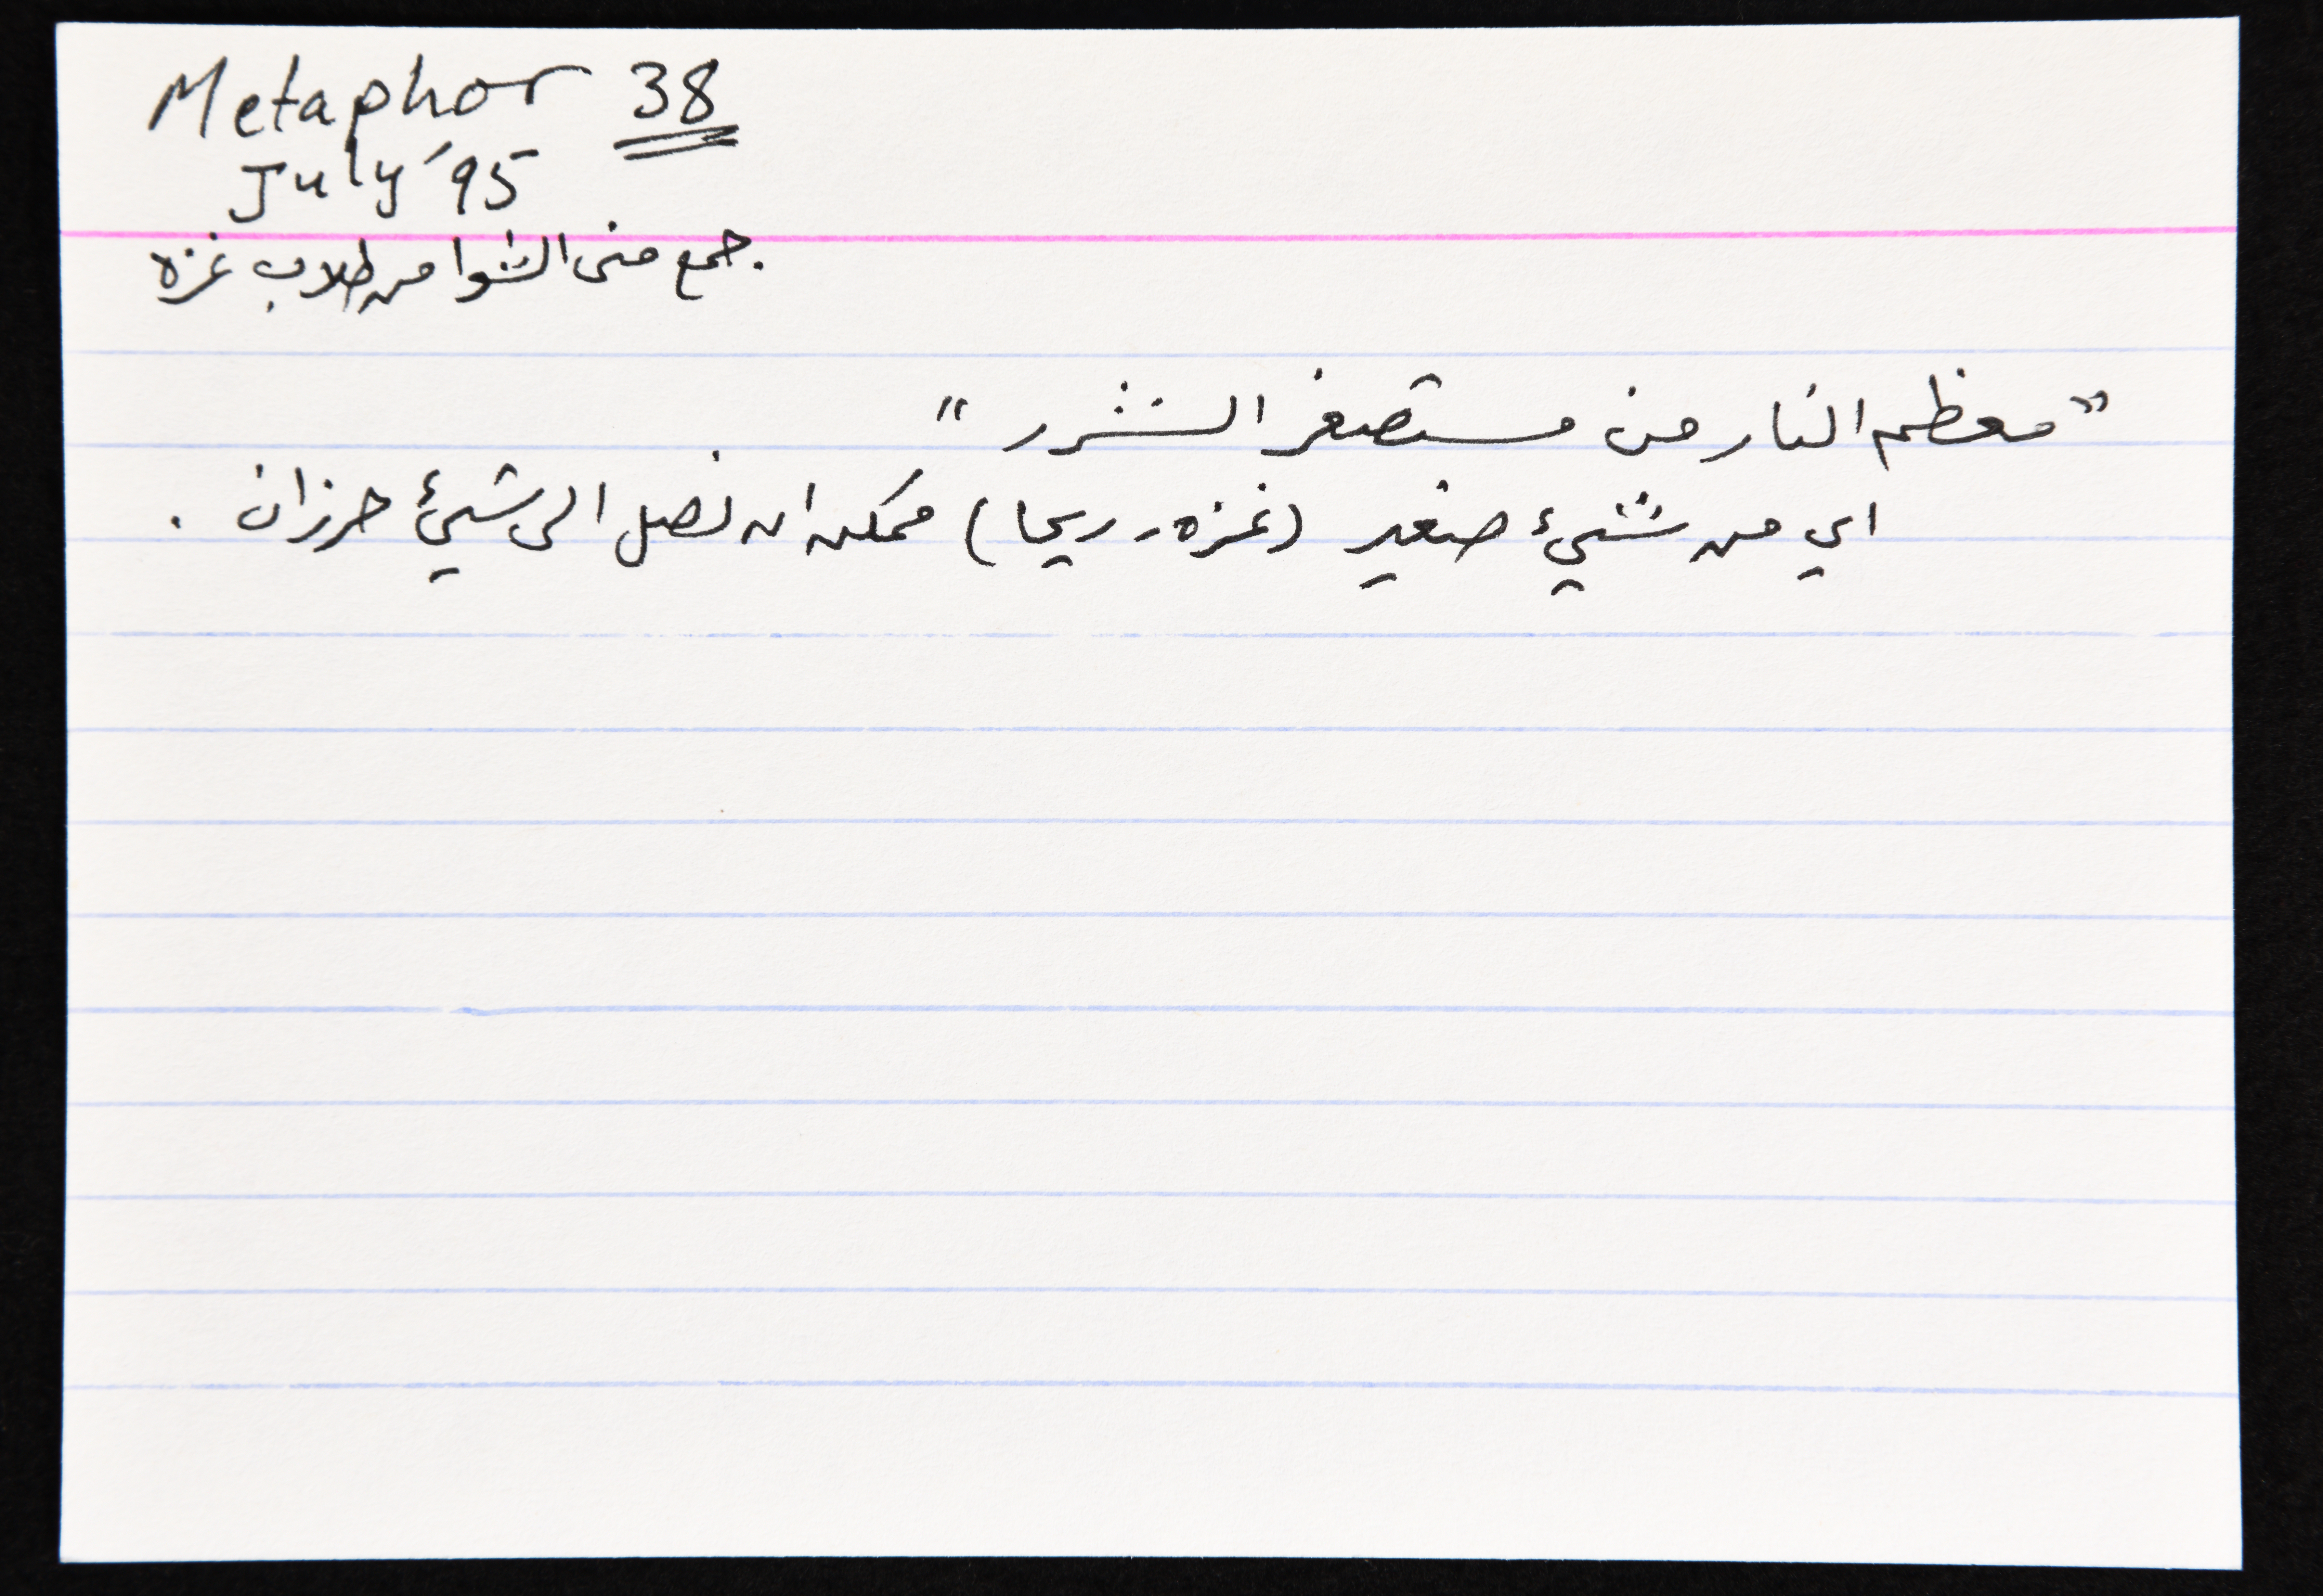 Metaphor 38
July '95
جمع منى الشوا من طلاب غزه
"معظم النار من مستصغر الشرر"
اي من شيئ صغير (غزه - ريحا) ممكن ان نصل الى شيئ حرزان .